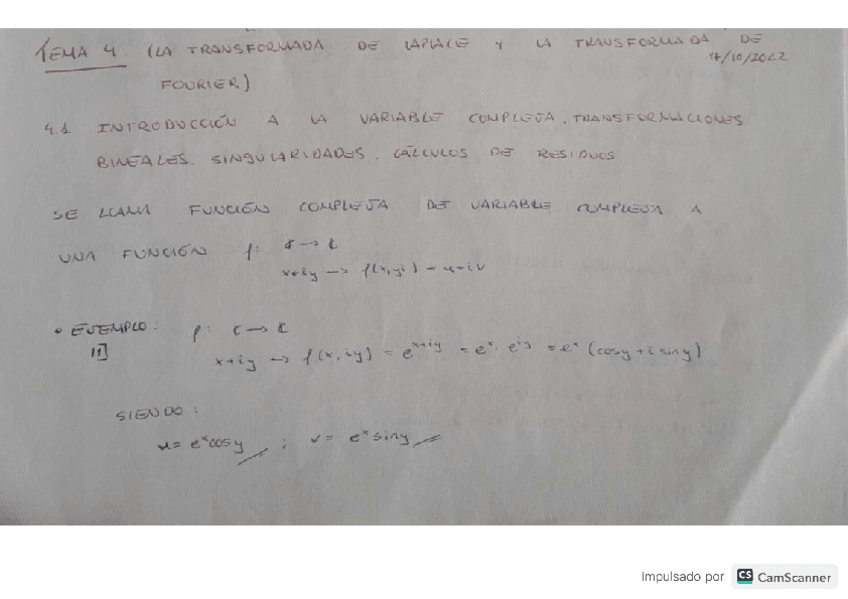 TEMA 4. (LA TRANSFORMADA DE LAPLACE Y LA TRANSFORMADA DE
17/10/2022
FOURIER)
4.1 INTRODUCCIÓN A LA VARIABLE COMPLEJA. TRANSFORMACIONES
BINEALES. SINGULARIDADES. CÁLCULOS DE RESIDUOS
SE LLAMA FUNCIÓN COMPLEJA DE VARIABLE COMPLEJA A
UNA FUNCIÓN f: ℂ → ℂ
x+iy → f(x,yi) = u+iv
• EJEMPLO: f: ℂ → ℂ
1]
x+iy → f(x,iy) = e^{x+iy} = e^x · e^{iy} = e^x (cosy + i siny)
SIENDO:
u = e^x cosy ; v = e^x siny
Impulsado por CS CamScanner